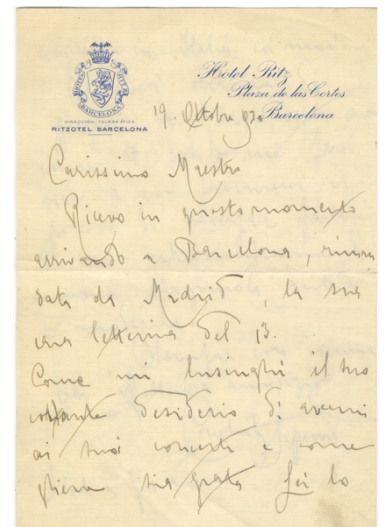 HOTEL RITZ
BARCELONA
DIRECCIÓN TELEGRÁFICA
RITZOTEL BARCELONA
Hotel Ritz
Plaza de las Cortes
Barcelona
19 Ottobre 920
Carissimo Maestro
Ricevo in questo momento
arrivando a Barcelona, riman
data da Madrid, la sua
cara letterina del 13.
Come mi lusinghi il tuo
costante desiderio di avermi
ai tuoi concerti e come
sia grata
lo